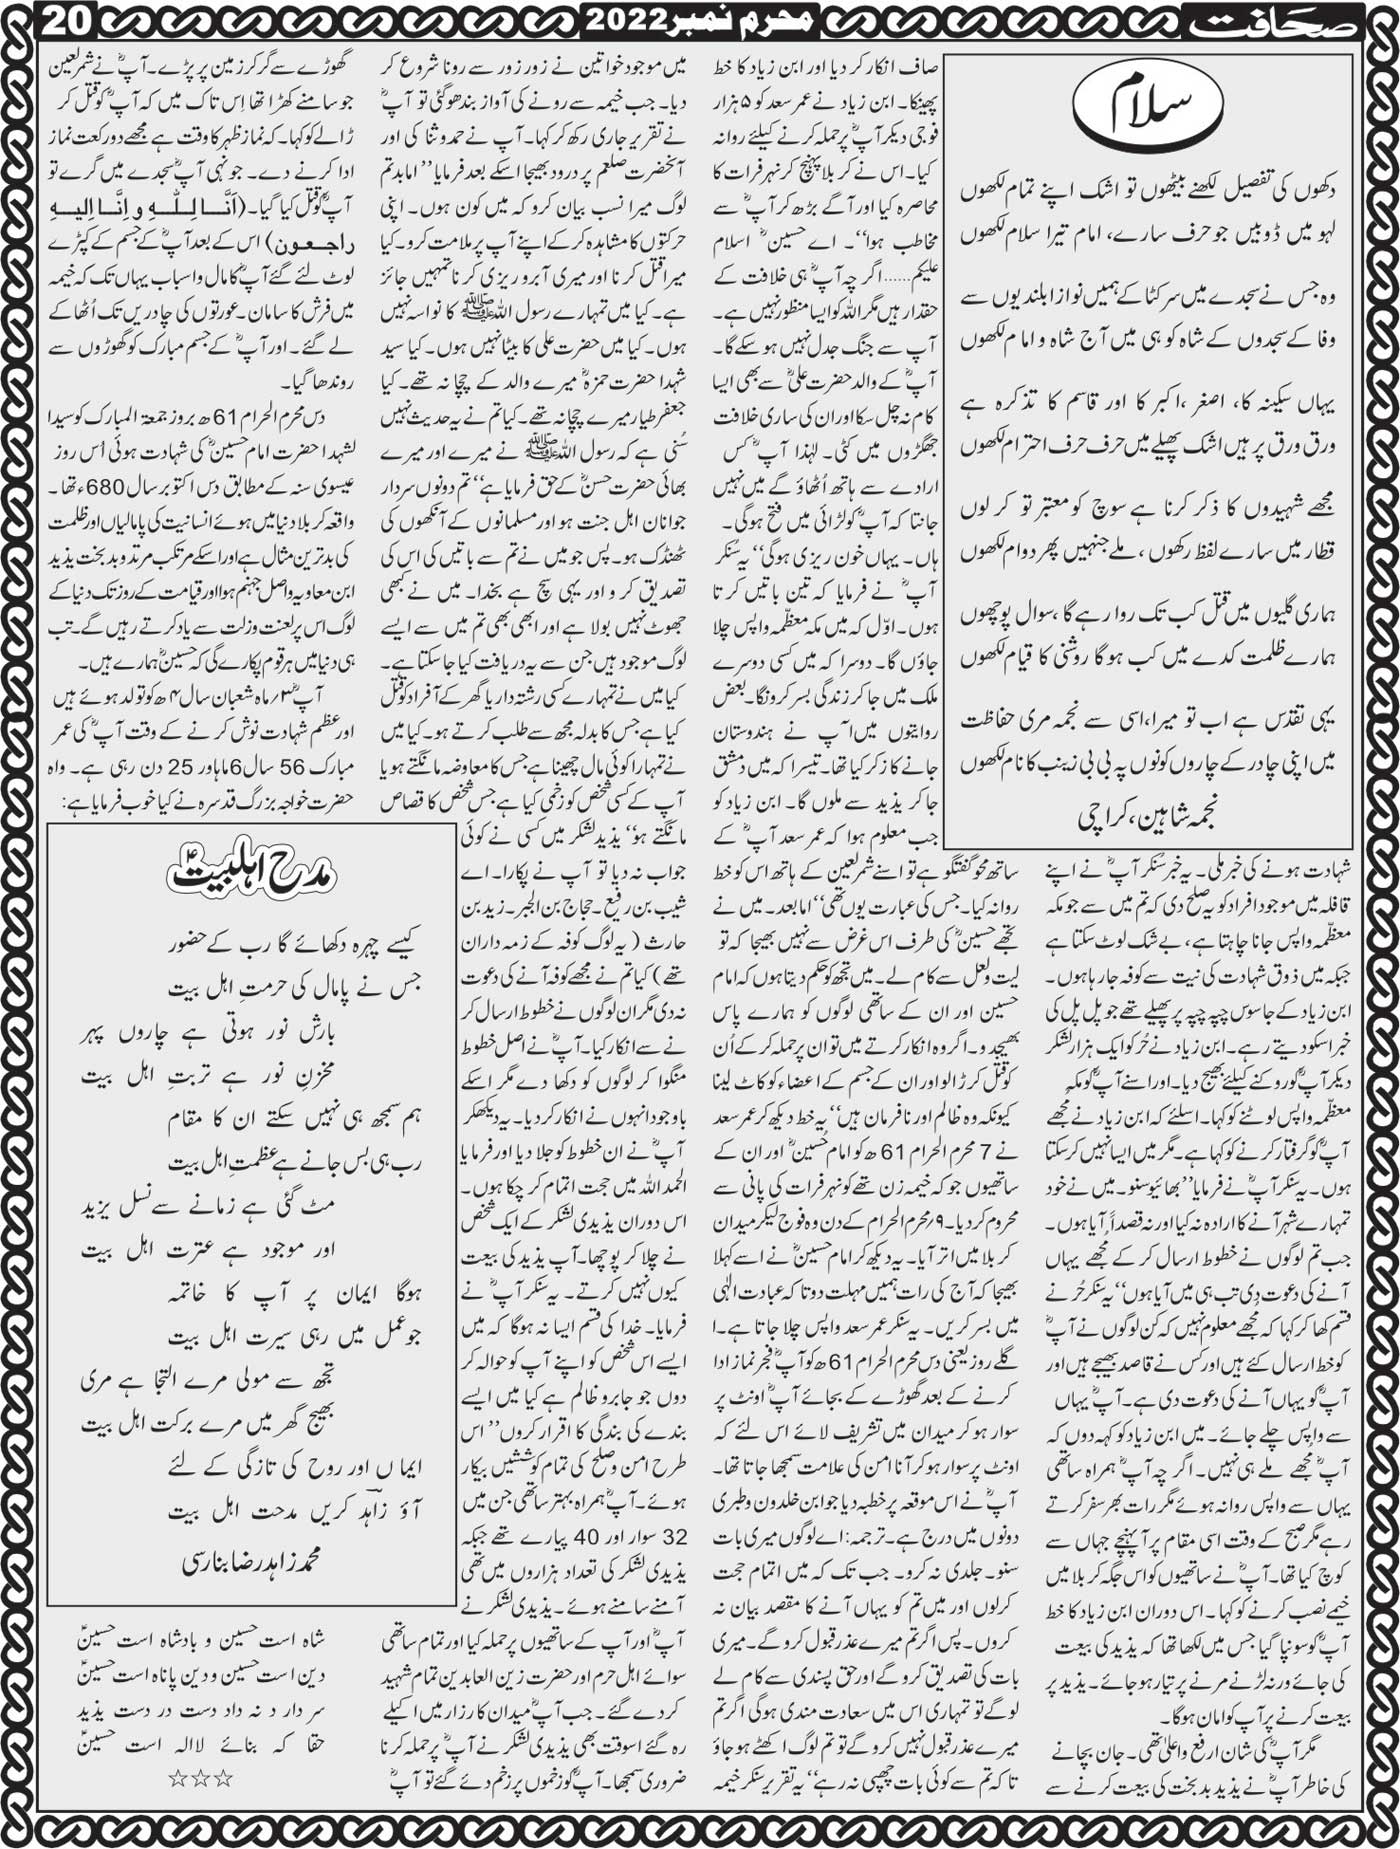 صحافت
محرم نمبر2022
20
سلام
دکھوں کی تفصیل لکھنے بیٹھوں تو اشک اپنے تمام لکھوں
لہو میں ڈوبیں جو حرف سارے، امام تیرا سلام لکھوں
وہ جس نے سجدے میں سر کٹا کے ہمیں نوازا بلندیوں سے
وفا کے سجدوں کے شاہ کو ہی میں آج شاہ و امام لکھوں
یہاں سکینہ کا، اصغر ،اکبر کا اور قاسم کا تذکرہ ہے
ورق ورق پر ہیں اشک پھیلے میں حرف حرف احترام لکھوں
مجھے شہیدوں کا ذکر کرنا ہے سوچ کو معتبر تو کر لوں
قطار میں سارے لفظ رکھوں ، ملے جنہیں پھر دوام لکھوں
ہماری گلیوں میں قتل کب تک روا رہے گا ،سوال پوچھوں
ہمارے ظلمت کدے میں کب ہوگا روشنی کا قیام لکھوں
یہی تقدس ہے اب تو میرا،اسی سے نجمہ مری حفاظت
میں اپنی چادر کے چاروں کونوں پہ بی بی زینب کا نام لکھوں
نجمہ شاہین، کراچی
شہادت ہونے کی خبر ملی۔ یہ خبر سُنکر آپؓ نے اپنے
قافلہ میں موجود افراد کو یہ صلح دی کہ تم میں سے جو مکہ
معظّمہ واپس جانا چاہتا ہے، بے شک لوٹ سکتا ہے
جبکہ میں ذوق شہادت کی نیت سے کوفہ جارہا ہوں۔
ابن زیاد کے جاسوس چپہ چپہ پر پھیلے تھے جو پل پل کی
خبر اسکو دیتے رہے۔ ابن زیاد نے حُر کو ایک ہزار لشکر
دیکر آپؓ کو روکنے کیلئے بھیج دیا۔ اور اسنے آپؓ کو مکہ
معظّمہ واپس لوٹنے کو کہا۔ اسلئے کہ ابن زیاد نے مُجھے
آپؓ کو گرفتار کرنے کو کہا ہے۔ مگر میں ایسا نہیں کر سکتا
ہوں۔ یہ سنکر آپؓ نے فرمایا ”بھائیو سنو۔ میں نے خود
تمہارے شہر آنے کا ارادہ نہ کیا اور نہ قصداً آیا ہوں۔
جب تم لوگوں نے خطوط ارسال کر کے مُجھے یہاں
آنے کی دعوت دی تب ہی میں آیا ہوں“ یہ سنکر حُر نے
قسم کھا کر کہا کہ مُجھے معلوم نہیں کہ کن لوگوں نے آپؓ
کو خط ارسال کئے ہیں اور کس نے قاصد بھیجے ہیں اور
آپؓ کو یہاں آنے کی دعوت دی ہے۔ آپؓ یہاں
سے واپس چلے جائے۔ میں ابن زیاد کو کہہ دوں کہ
آپؓ مُجھے ملے ہی نہیں۔ اگر چہ آپؓ ہمراہ ساتھی
یہاں سے واپس روانہ ہوئے مگر رات بھر سفر کرتے
رہے مگر صبح کے وقت اسی مقام پر آپہنچے جہاں سے
کوچ کیا تھا۔ آپؓ نے ساتھیوں کو اس جگہ کربلا میں
خیمے نصب کرنے کو کہا۔ اس دوران ابن زیاد کا خط
آپؓ کو سونپا گیا جس میں لکھا تھا کہ یذید کی بیعت
کی جائے ورنہ لڑنے مرنے پر تیار ہو جائے۔ یذید پر
بیعت کرنے پر آپ کو امان ہوگا۔
مگر آپؓ کی شان ارفع واعلیٰ تھی۔ جان بچانے
کی خاطر آپؓ نے یذید بدبخت کی بیعت کرنے سے
صاف انکار کر دیا اور ابن زیاد کا خط
پھینکا۔ ابن زیاد نے عمر سعد کو ۵ ہزار
فوجی دیکر آپؓ پر حملہ کرنے کیلئے روانہ
کیا۔ اس نے کربلا پہنچ کر نہر فرات کا
محاصرہ کیا اور آگے بڑھ کر آپؓ سے
مخاطب ہوا“۔ اے حسینؓ اسلام
علیکم......اگر چہ آپؓ ہی خلافت کے
حقدار ہیں مگر اللہ کو ایسا منظور نہیں ہے۔
آپ سے جنگ جدل نہیں ہوسکے گا۔
آپؓ کے والد حضرت علیؓ سے بھی ایسا
کام نہ چل سکا اور ان کی ساری خلافت
جھگڑوں میں کٹی۔ لہٰذا آپؓ کس
ارادے سے ہاتھ اُٹھاؤ گے میں نہیں
جانتا کہ آپؓ کو لڑائی میں فتح ہوگی۔
ہاں۔ یہاں خون ریزی ہوگی“ یہ سُنکر
آپؓ نے فرمایا کہ تین باتیں کرتا
ہوں۔ اوّل کہ میں مکہ معظّمہ واپس چلا
جاؤں گا۔ دوسرا کہ میں کسی دوسرے
ملک میں جا کر زندگی بسر کرونگا۔ بعض
روایتوں میں آپ نے ہندوستان
جانے کا زکر کیا تھا۔ تیسرا کہ میں دمشق
جا کر یذید سے ملوں گا۔ ابن زیاد کو
جب معلوم ہوا کہ عمر سعد آپؓ کے
ساتھ محو گفتگو ہے تو اسنے شمر لعین کے ہاتھ اس کو خط
روانہ کیا۔ جس کی عبارت یوں تھی“ اما بعد۔ میں نے
تجھے حسینؓ کی طرف اس غرض سے نہیں بھیجا کہ تو
لیت ولعل سے کام لے۔ میں تجھ کو حکم دیتا ہوں کہ امام
حسین اور ان کے ساتھی لوگوں کو ہمارے پاس
بھیجدو۔ اگر وہ انکار کرتے ہیں تو ان پر حملہ کر کے اُن
کو قتل کر ڈالو اور ان کے جسم کے اعضاء کو کاٹ لینا
کیونکہ وہ ظالم اور نافرمان ہیں“ یہ خط دیکھ کر عمر سعد
نے 7 محرم الحرام 61ھ کو امام حُسینؓ اور ان کے
ساتھیوں جو کہ خیمہ زن تھے کو نہر فرات کی پانی سے
محروم کر دیا۔ ۹؍محرم الحرام کے دن وہ فوج لیکر میدان
کربلا میں اتر آیا۔ یہ دیکھ کر امام حسینؓ نے اسے کہلا
بھیجا کہ آج کی رات ہمیں مہلت دو تا کہ عبادت الہٰی
میں بسر کریں۔ یہ سنکر عمر سعد واپس چلا جاتا ہے۔ ا
گلے روز یعنی دس محرم الحرام 61ھ کو آپؓ فجر نماز ادا
کرنے کے بعد گھوڑے کے بجائے آپؓ اونٹ پر
سوار ہو کر میدان میں تشریف لائے اس لئے کہ
اونٹ پر سوار ہو کر آنا امن کی علامت سمجھا جاتا تھا۔
آپؓ نے اس موقعہ پر خطبہ دیا جو ابن خلدون وطبری
دونوں میں درج ہے۔ ترجمہ: اے لوگوں میری بات
سنو۔ جلدی نہ کرو۔ جب تک کہ میں اتمام حجت
کرلوں اور میں تم کو یہاں آنے کا مقصد بیان نہ
کروں۔ پس اگر تم میرے عذر قبول کرو گے۔ میری
بات کی تصدیق کرو گے اور حق پسندی سے کام لے
لوگے تو تمہاری اس میں سعادت مندی ہوگی اگر تم
میرے عذر قبول نہیں کرو گے تو تم لوگ اکٹھے ہو جاؤ
تا کہ تم سے کوئی بات چھپی نہ رہے“ یہ تقریر سنکر خیمہ
میں موجود خواتین نے زور زور سے رونا شروع کر
دیا۔ جب خیمہ سے رونے کی آواز بندھوگئی تو آپؓ
نے تقریر جاری رکھ کر کہا۔ آپ نے حمد وثنا کی اور
آنحضرت صلعم پر درود بھیجا اسکے بعد فرمایا” اما بد تم
لوگ میرا نسب بیان کرو کہ میں کون ہوں۔ اپنی
حرکتوں کا مشاہدہ کر کے اپنے آپ پر ملامت کرو۔ کیا
میرا قتل کرنا اور میری آبروریزی کرنا تمہیں جائز
ہے۔ کیا میں تمہارے رسول اللہ ﷺ کا نواسہ نہیں
ہوں۔ کیا میں حضرت علی کا بیٹا نہیں ہوں۔ کیا سید
شہدا حضرت حمزہؓ میرے والد کے چچا نہ تھے۔ کیا
جعفر طیار میرے چچا نہ تھے۔ کیا تم نے یہ حدیث نہیں
سُنی ہے کہ رسول اللہ ﷺ نے میرے اور میرے
بھائی حضرت حسنؓ کے حق فرمایا ہے” تم دونوں سردار
جوانان اہل جنت ہو اور مسلمانوں کے آنکھوں کی
ٹھنڈک ہو۔ پس جو میں نے تم سے باتیں کی اس کی
تصدیق کرو اور یہی سچ ہے بخدا۔ میں نے کبھی
جھوٹ نہیں بولا ہے اور ابھی بھی تم میں سے ایسے
لوگ موجود ہیں جن سے یہ دریافت کیا جاسکتا ہے۔
کیا میں نے تمہارے کسی رشتہ دار یا گھر کے آفراد کو قتل
کیا ہے جس کا بدلہ مجھ سے طلب کرتے ہو۔ کیا میں
نے تمہارا کوئی مال چھینا ہے جس کا معاوضہ مانگتے ہو یا
آپ کے کسی شخص کو زخمی کیا ہے جس شخص کا قصاص
مانگتے ہو“ یذید لشکر میں کسی نے کوئی
جواب نہ دیا تو آپ نے پکارا۔ اے
شیب بن رفیع۔ حجاج بن الجبر۔ زید بن
حارث ( یہ لوگ کوفہ کے زمہ داران
تھے) کیا تم نے مجھے کوفہ آنے کی دعوت
نہ دی مگر ان لوگوں نے خطوط ارسال کر
نے سے انکار کیا۔ آپؓ نے اصل خطوط
منگوا کر لوگوں کو دکھا دے مگر اسکے
باوجود انہوں نے انکار کر دیا۔ یہ دیکھکر
آپؓ نے ان خطوط کو جلا دیا اور فرمایا
الحمد اللہ میں حجت اتمام کر چکا ہوں۔
اس دوران یذیدی لشکر کے ایک شخص
نے چلا کر پوچھا۔ آپ یذید کی بیعت
کیوں نہیں کرتے۔ یہ سنکر آپؓ نے
فرمایا۔ خدا کی قسم ایسا نہ ہوگا کہ میں
ایسے اس شخص کو اپنے آپ کو حوالہ کر
دوں جو جابرو ظالم ہے کیا میں ایسے
بندے کی بندگی کا اقرار کروں” اس
طرح امن وصلح کی تمام کوششیں بیکار
ہوئے۔ آپؓ ہمراہ بہتر ساتھی جن میں
32 سوار اور 40 پیارے تھے جبکہ
یذیدی لشکر کی تعداد ہزاروں میں تھی
آمنے سامنے ہوئے۔ یذیدی لشکر نے
آپؓ اور آپ کے ساتھیوں پر حملہ کیا اور تمام ساتھی
سوائے اہل حرم اور حضرت زین العابدین تمام شہید
کر دے گئے۔ جب آپؓ میدان کارزار میں اکیلے
رہ گئے اسوقت بھی یذیدی لشکر نے آپؓ پر حملہ کرنا
ضروری سمجھا۔ آپؓ کو زخموں پر زخم دئے گئے تو آپؓ
گھوڑے سے گر کر زمین پر پڑے۔ آپؓ نے شمر لعین
جو سامنے کھڑا تھا اِس تاک میں کہ آپؓ کو قتل کر
ڑالے کو کہا۔ کہ نماز ظہر کا وقت ہے مجھے دو رکعت نماز
ادا کرنے دے۔ جونہی آپؓ سجدے میں گرے تو
آپؓ کو قتل کیا گیا۔ (اَنَّا لِلّٰہِ و اِنَّا اِلیہِ
راجعون) اس کے بعد آپؓ کے جسم کے کپڑے
لوٹ لئے گئے آپؓ کا مال واسباب یہاں تک کہ خیمہ
میں فرش کا سامان۔ عورتوں کی چادریں تک اُٹھا کے
لے گئے۔ اور آپؓ کے جسم مبارک کو گھوڑوں سے
روندھا گیا۔
دس محرم الحرام 61ھ بروز جمعتہ المبارک کو سیدا
لشہدا حضرت امام حسینؓ کی شہادت ہوئی اُس روز
عیسوی سنہ کے مطابق دس اکتوبر سال 680ء تھا۔
واقعہ کربلا دنیا میں ہوئے انسانیت کی پامالیاں اور ظلمت
کی بدترین مثال ہے اور اسکے مرتکب مرتد و بدبخت یذید
ابن معاویہ واصل جہنم ہوا اور قیامت کے روز تک دنیا کے
لوگ اس پر لعنت وزلت سے یاد کرتے رہیں گے۔ تب
ہی دنیا میں ہر قوم پکارے گی کہ حسینؓ ہمارے ہیں۔
آپؓ ۳؍ماہ شعبان سال ۴ھ کو تولد ہوئے ہیں
اور عظم شہادت نوش کرنے کے وقت آپؓ کی عمر
مبارک 56 سال6ماہاور 25 دن رہی ہے۔ واہ
حضرت خواجہ بزرگ قدسرہ نے کیا خوب فرمایا ہے:
مدح اہلبیتؑ
کیسے چہرہ دکھائے گا رب کے حضور
جس نے پامال کی حرمتِ اہل بیت
بارش نور ہوتی ہے چاروں پہر
مخزنِ نور ہے تربتِ اہل بیت
ہم سمجھ ہی نہیں سکتے ان کا مقام
رب ہی بس جانے ہے عظمتِ اہل بیت
مٹ گئی ہے زمانے سے نسل یزید
اور موجود ہے عترت اہل بیت
ہوگا ایمان پر آپ کا خاتمہ
جو عمل میں رہی سیرت اہل بیت
تجھ سے مولی مرے التجا ہے مری
بھیج گھر میں مرے برکت اہل بیت
ایماں اور روح کی تازگی کے لئے
آؤ زاہد کریں مدحت اہل بیت
محمد زاہد رضا بنارسی
شاہ است حسین و بادشاہ است حسینؑ
دین است حسین و دین پاناہ است حسینؑ
سر دار د نہ داد دست در دست یذید
حقا کہ بنائے لاالہ است حسینؑ
☆☆☆